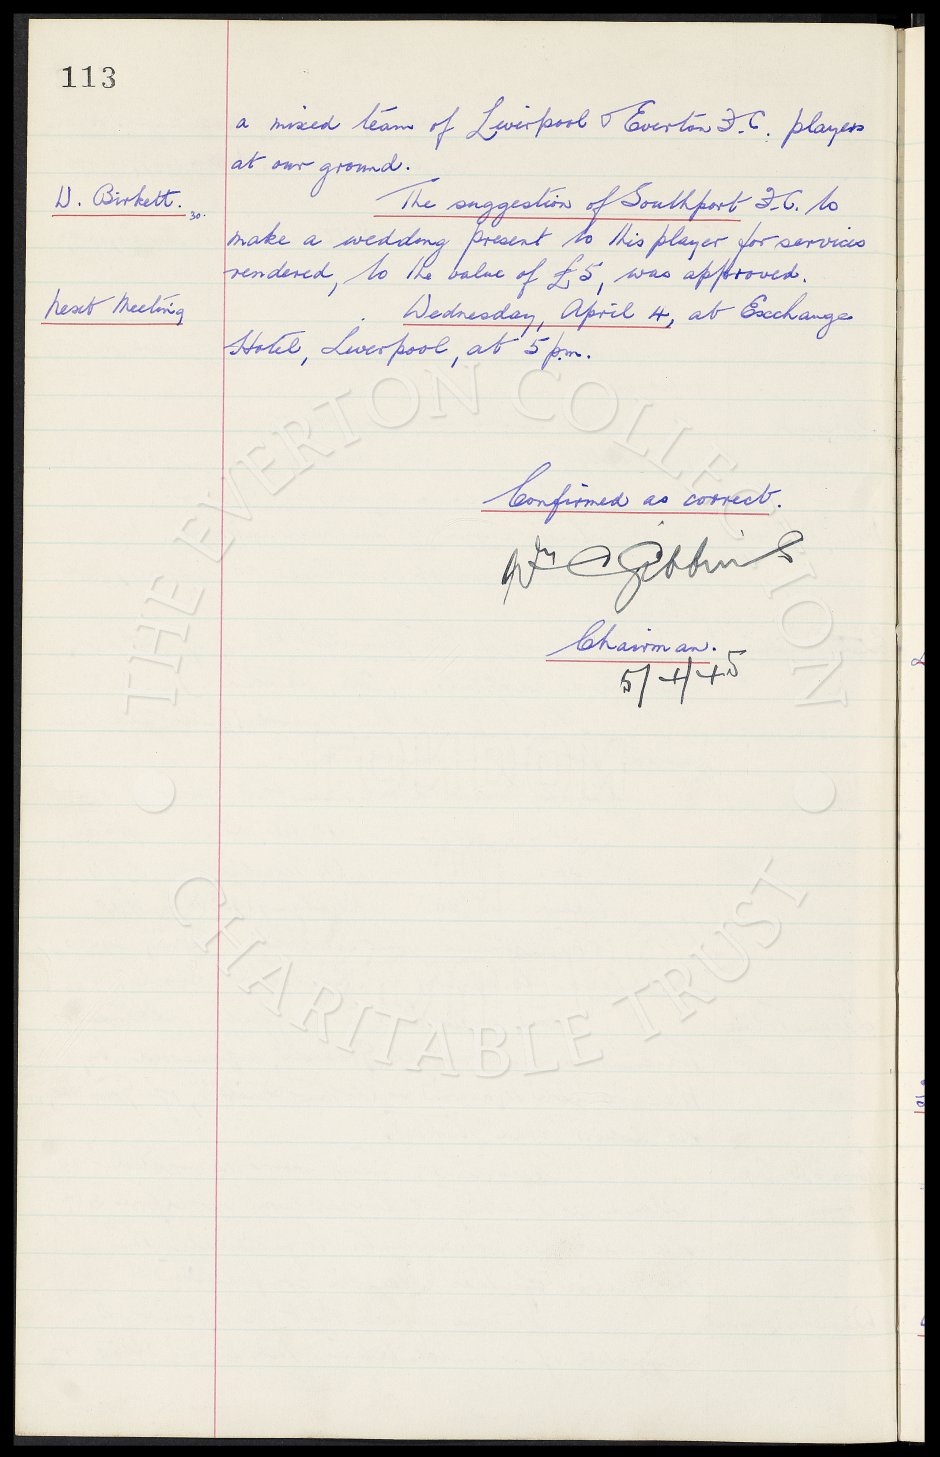 113
a mixed team of Liverpool & Everton F.C. players
at our ground.
W. Birkett. 30.
The suggestion of Southport F.C. to
make a wedding present to this player for services
rendered, to the value of £5, was approved.
Next Meeting
Wednesday, April 4, at Exchange
Hotel, Liverpool, at 5 p.m.
Confirmed as correct.
Wm C Gibbins
Chairman.
5/4/45
THE EVERTON COLLECTION
CHARITABLE TRUST